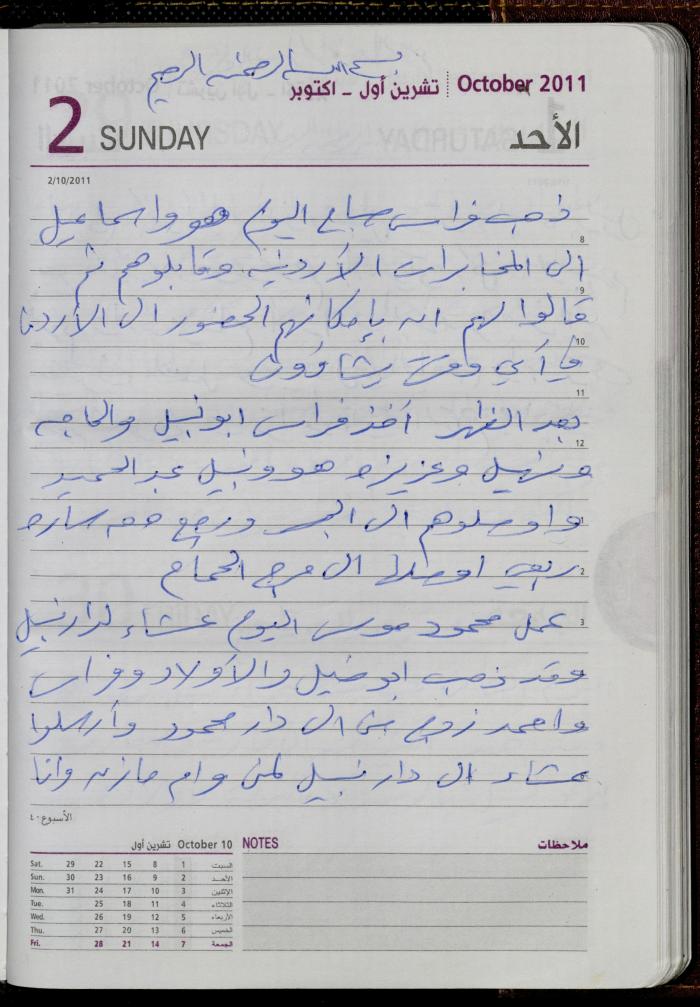 بسم الله الرحمن الرحيم
October 2011 تشرين أول - اكتوبر
2 SUNDAY الأحد
2/10/2011
ذهب فراس صباح اليوم هو واسماعيل
8
الى المخابرات الأردنية وقابلوهم ثم
9
قالوا لهم انه بإمكانهم الحضور الى الأردن
10
في أي وقت يشاؤون
11
بعد الظهر أخذ فراس ابو نبيل والحاجه
12
ونهيل وعزيزه هو ونبيل عبد الحميد
1
واوصلوهم الى الجسر ورجع معه ساره
2
اوصلها الى مرج الحمام
3
عمل محمود موسى اليوم عشاء لدار نبيل
وقد ذهب ابو نبيل والأولاد وفراس
واحمد زوج الى دار محمود وأرسلوا
عشاء الى دار نبيل لمن وام مازن وانا
الأسبوع: ٤٠
October 10 تشرين أول
NOTES ملاحظات
Sat. 29 22 15 8 1 السبت
Sun. 30 23 16 9 2 الأحد
Mon. 31 24 17 10 3 الإثنين
Tue. 25 18 11 4 الثلاثاء
Wed. 26 19 12 5 الأربعاء
Thu. 27 20 13 6 الخميس
Fri. 28 21 14 7 الجمعة